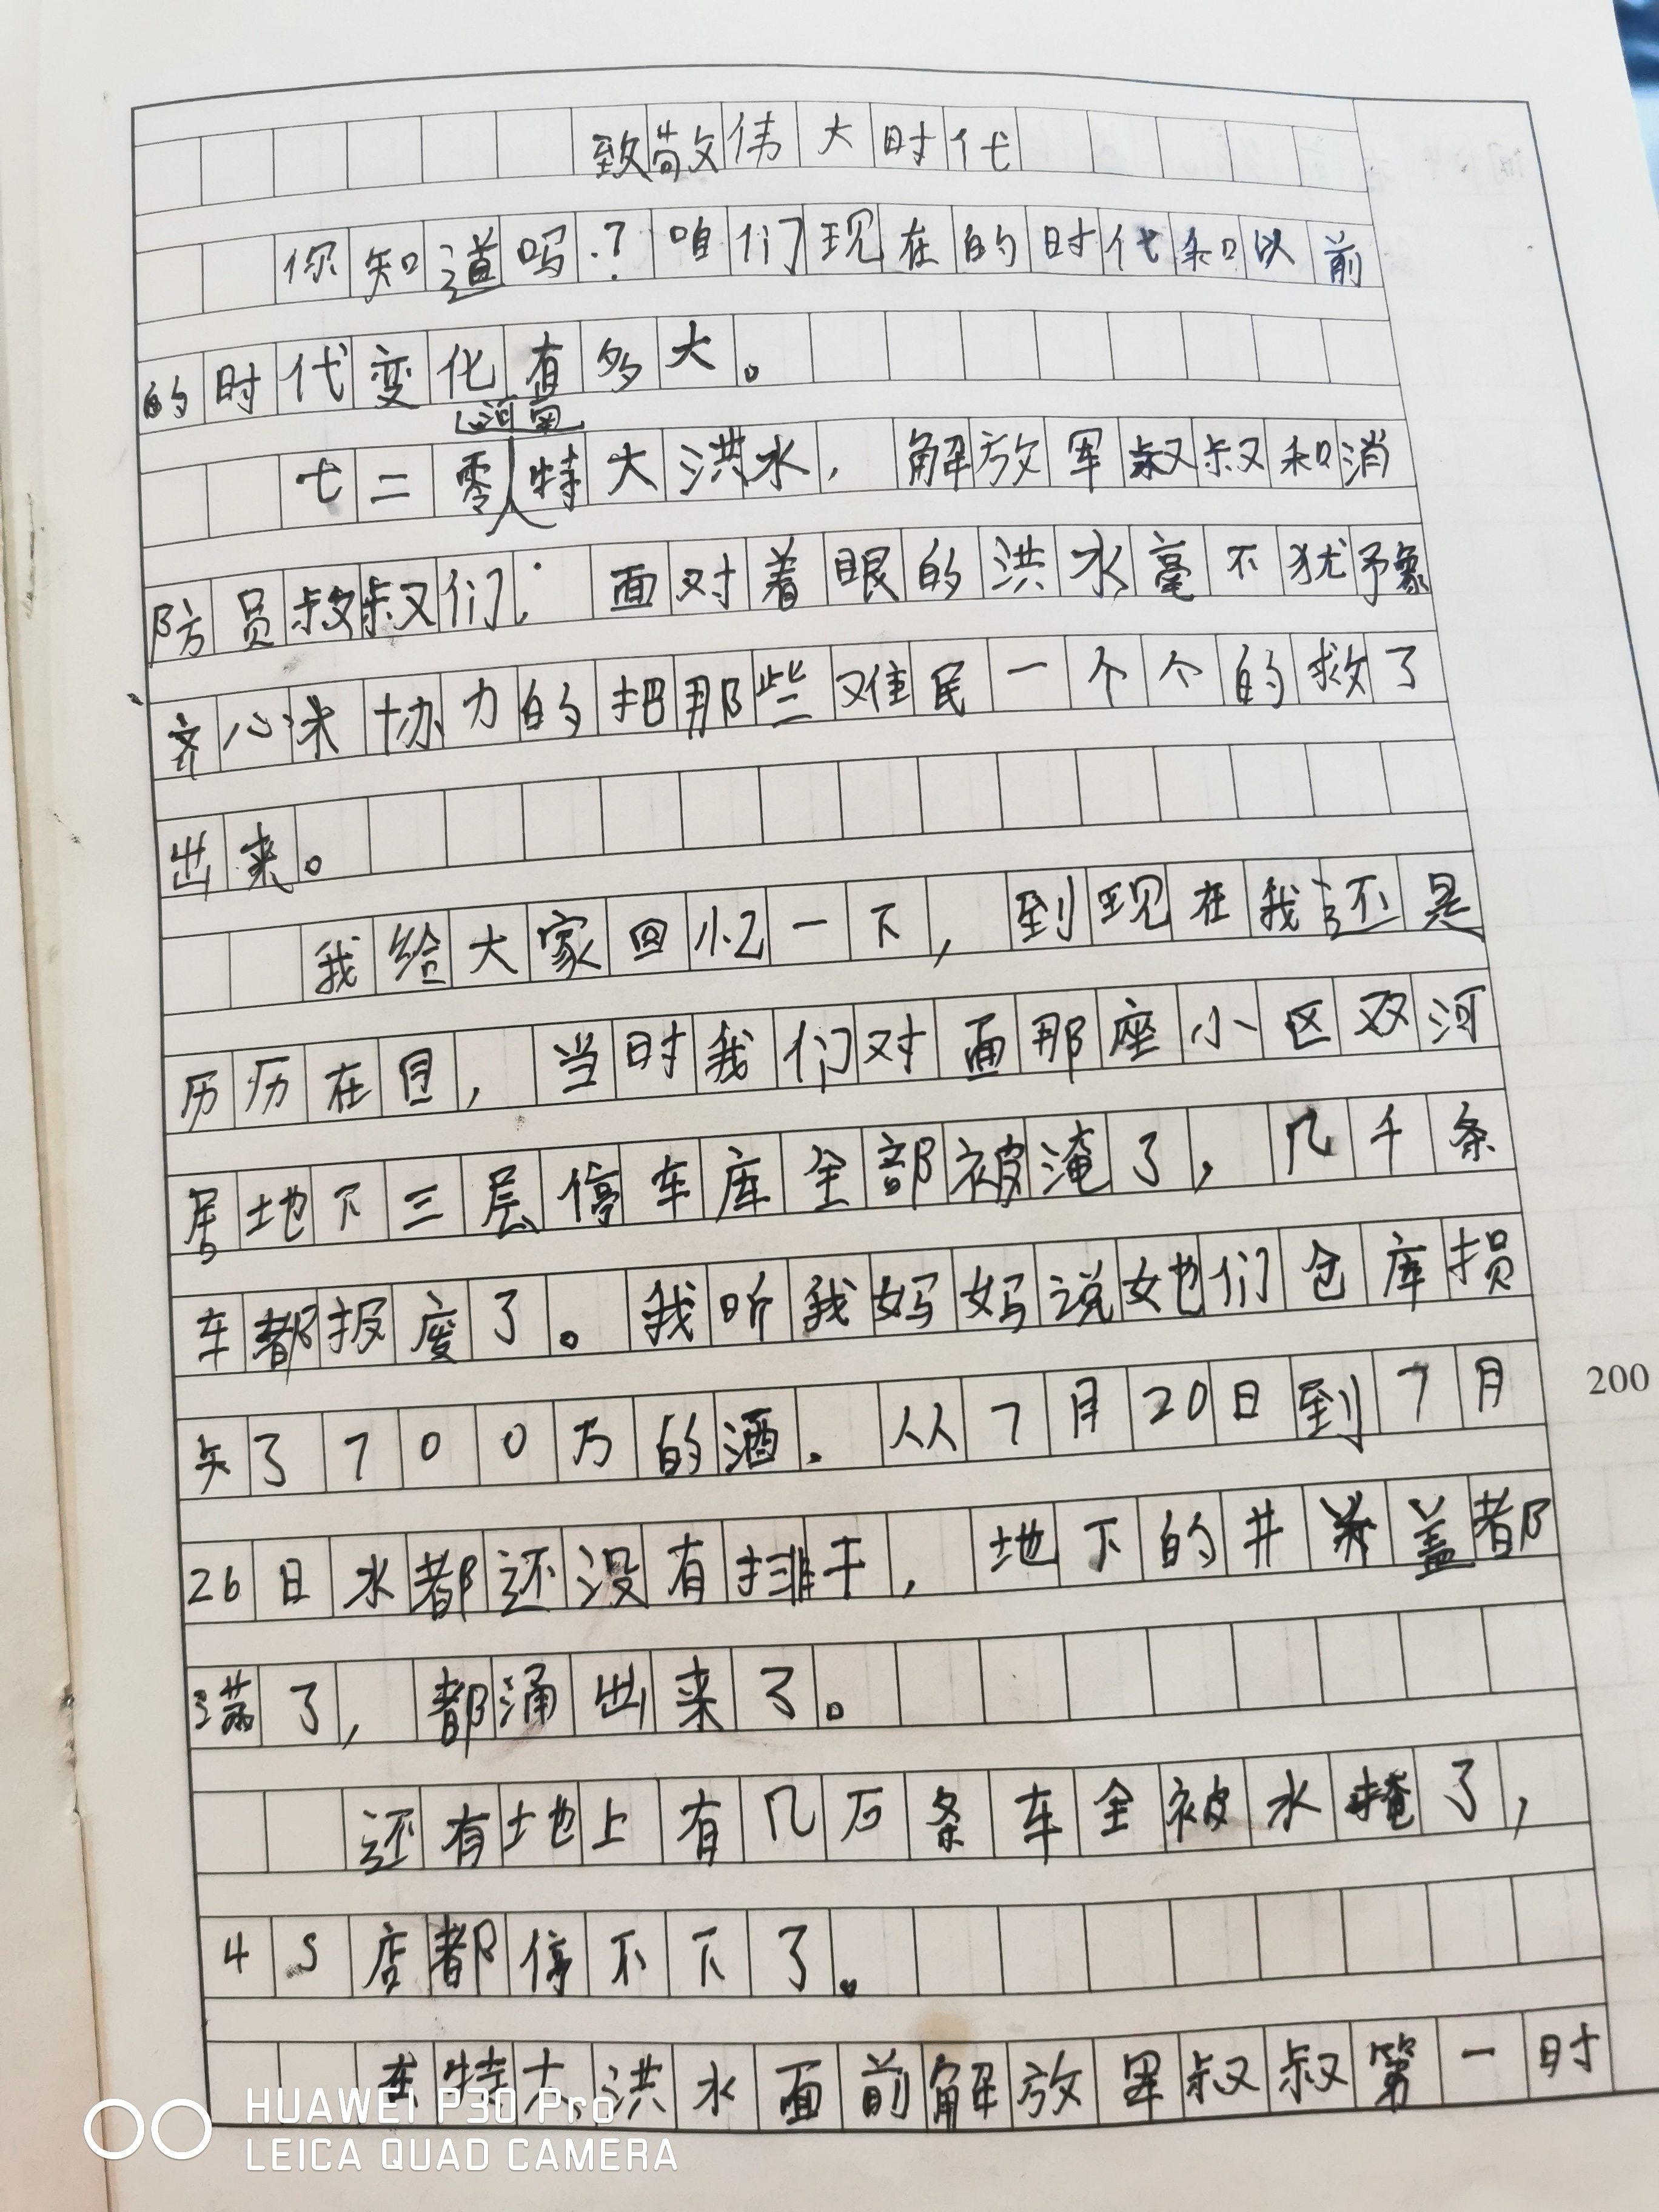 致敬伟大时代
你知道吗？咱们现在的时代和以前
的时代变化有多大。
河南
七二零特大洪水，解放军叔叔和消
防员叔叔们：面对着眼的洪水毫不犹予象
齐心 协力的把那些难民一个个的救了
出来。
我给大家回忆一下，到现在我还是
历历在目，当时我们对面那座小区双河
居地下三层停车库全部被淹了，几千条
车都报废了。我听我妈妈说她们仓库损
失了700万的酒。从7月20日到7月
26日水都还没有排干，地下的井盖都
满了，都涌出来了。
还有地上有几万条车全被水掩了，
4S店都停不下了。
在特大洪水面前解放军叔叔第一时
200
HUAWEI P30 Pro
LEICA QUAD CAMERA